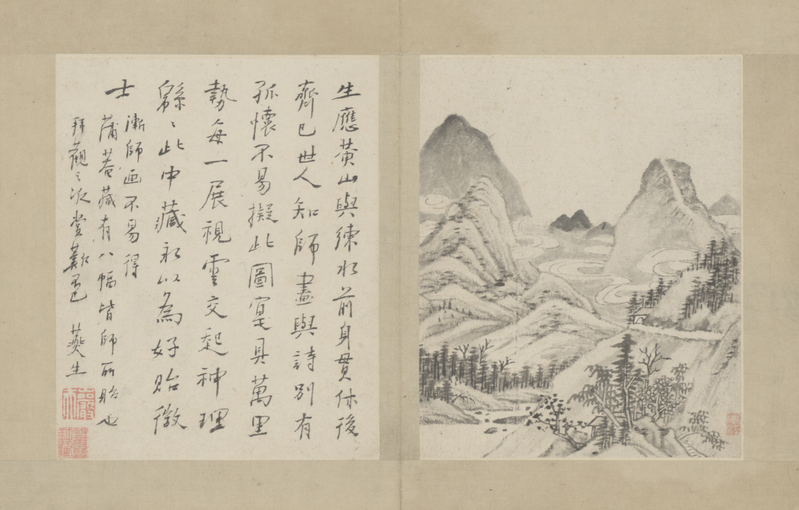 生應黃山與練水前身貫休後
齊己世人知師畫與詩別有
孤懷不易擬此圖寔具萬里
勢每一展視靈交起神理
綿〻此中藏永以為好貽微
士
漸師画不易得
蒲菴藏有八幅皆師所貽也
拜觀之次賞歎
蕡生